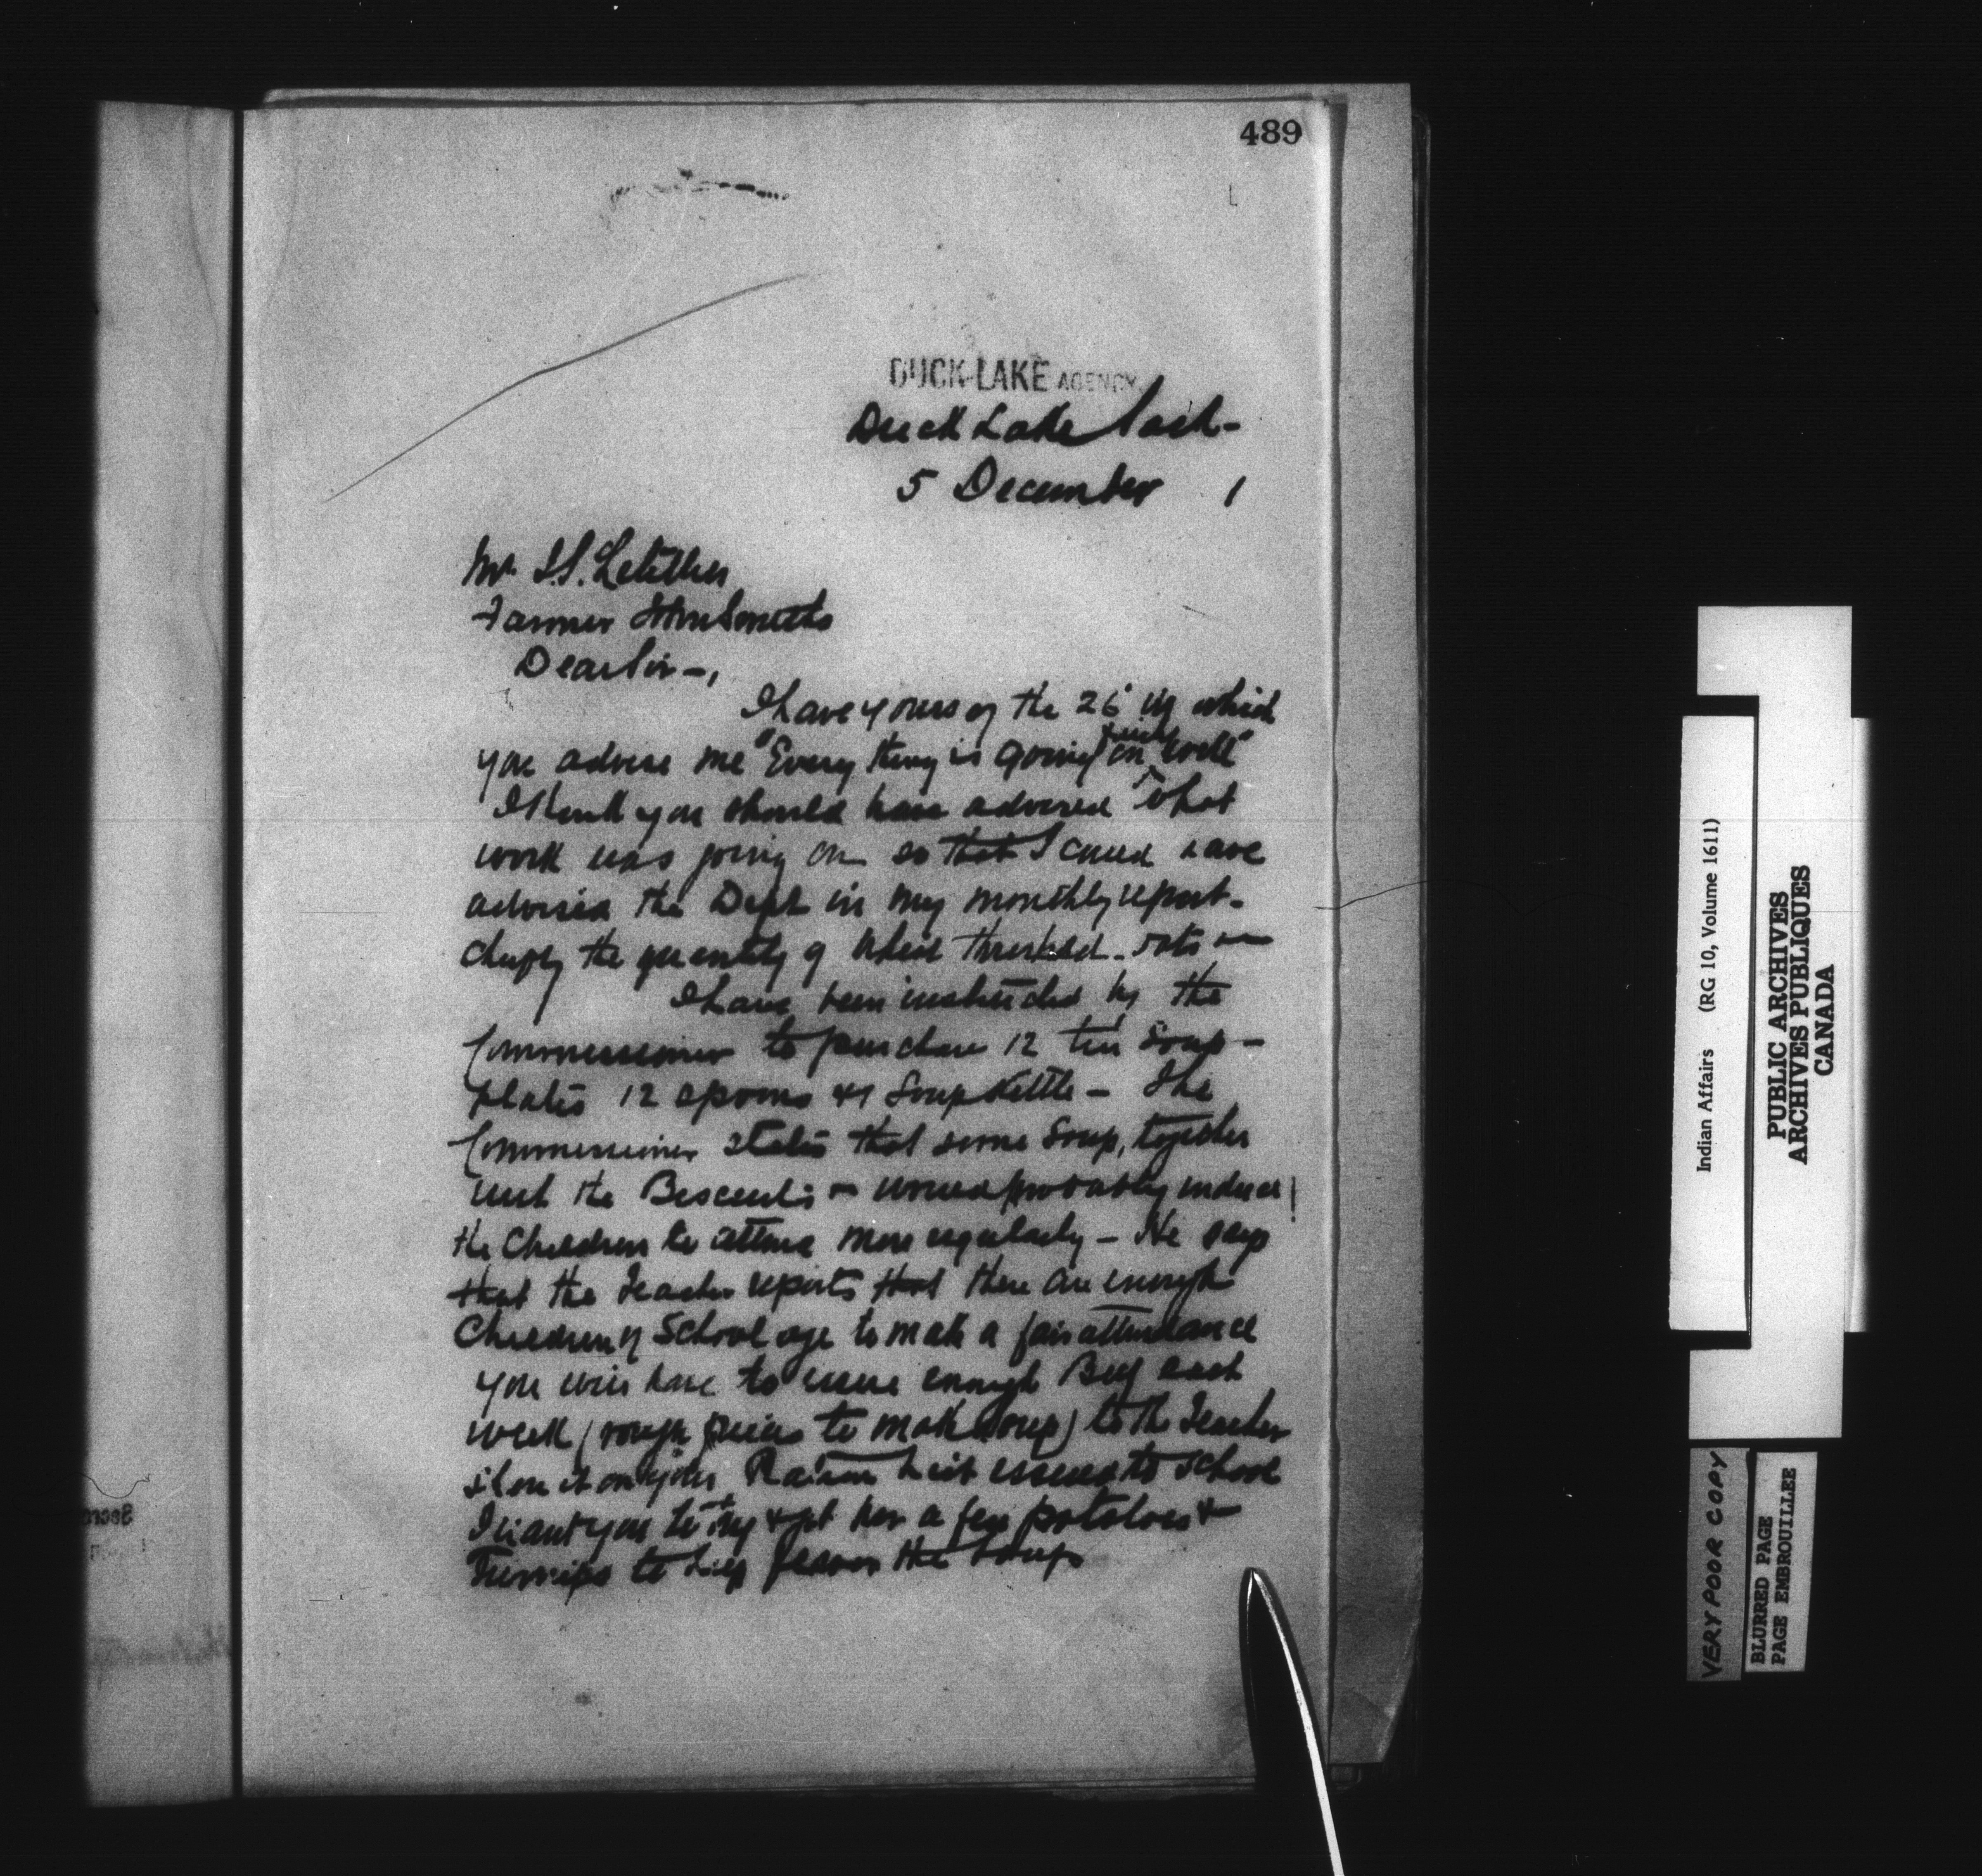 489
DUCK LAKE AGENCY
Duck Lake Sask-
5 December 1
Mr.
Farmer John Smiths
Dear Sir -,
I have yours of the 26 in which
you advise me "Every thing is going on well"
I think you should have advised what
work was going on so that I could have
advised the Dept in my monthly report-
the quantity of wheat threshed - oats
I have been instructed by the
Commissioner to purchase 12 tin Soup-
plates 12 spoons & 1 Soup Kettle - The
Commissioner states that some Soup, together
with the Biscuits would probably induce
the Children to attend more regularly - He says
that the Teacher reports that there are enough
Children of School age to make a fair attendance
you will have to issue enough Beef each
week (rough pieces to make soup) to the Teacher
show it on your Ration List issued to School
I want you to try & get her a few potatoes &
Turnips to help flavor the soup
Indian Affairs (RG 10, Volume 1611)
PUBLIC ARCHIVES
ARCHIVES PUBLIQUES
CANADA
VERY POOR COPY
BLURRED PAGE
PAGE EMBROUILLEE